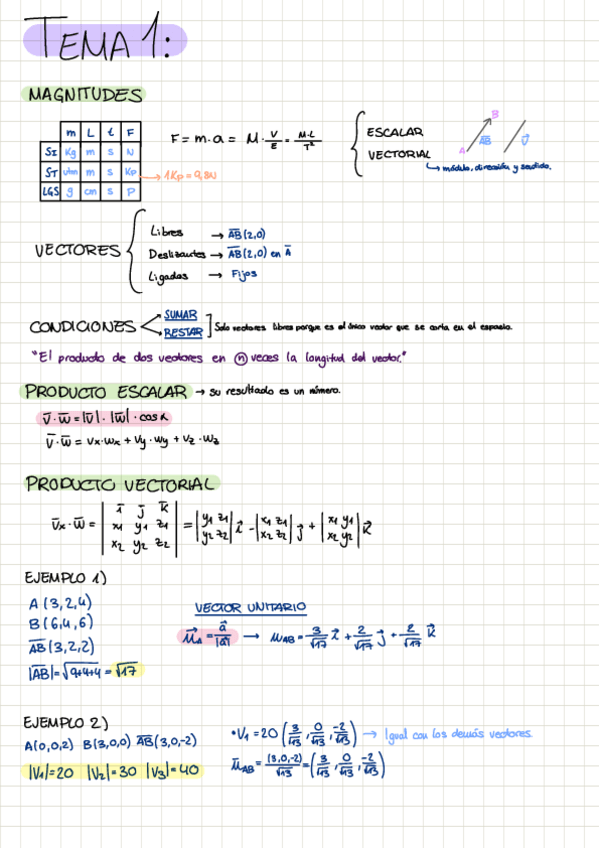 TEMA 1:
MAGNITUDES
m L t F
SI Kg m s N
ST utm m s Kp → 1Kp = 9,8N
LGS g cm s P
F = m·a = M· V/E = M·L/T²
ESCALAR
VECTORIAL
→ módulo, dirección y sentido.
A B AB V
VECTORES
Libres → AB (2,0)
Deslizantes → AB (2,0) en A
Ligados → Fijos
CONDICIONES
SUMAR
RESTAR
Solo vectores libres porque es el único vector que se corta en el espacio.
"El producto de dos vectores en n veces la longitud del vector."
PRODUCTO ESCALAR → su resultado es un número.
V·W = |V|·|W|·cos α
V·W = Vx·Wx + Vy·Wy + Vz·Wz
PRODUCTO VECTORIAL
Vx·W = | i j k | x1 y1 z1 | x2 y2 z2 | = |y1 z1 y2 z2| i - |x1 z1 x2 z2| j + |x1 y1 x2 y2| k
EJEMPLO 1)
A (3,2,4)
B (6,4,6)
AB (3,2,2)
|AB| = √9+4+4 = √17
VECTOR UNITARIO
μA = a/|a| → μAB = 3/√17 i + 2/√17 j + 2/√17 k
EJEMPLO 2)
A(0,0,2) B(3,0,0) AB(3,0,-2)
|V1|=20 |V2|=30 |V3|=40
•V1 = 20 (3/√13, 0/√13, -2/√13) → Igual con los demás vectores.
μAB = (3,0,-2)/√13 = (3/√13, 0/√13, -2/√13)